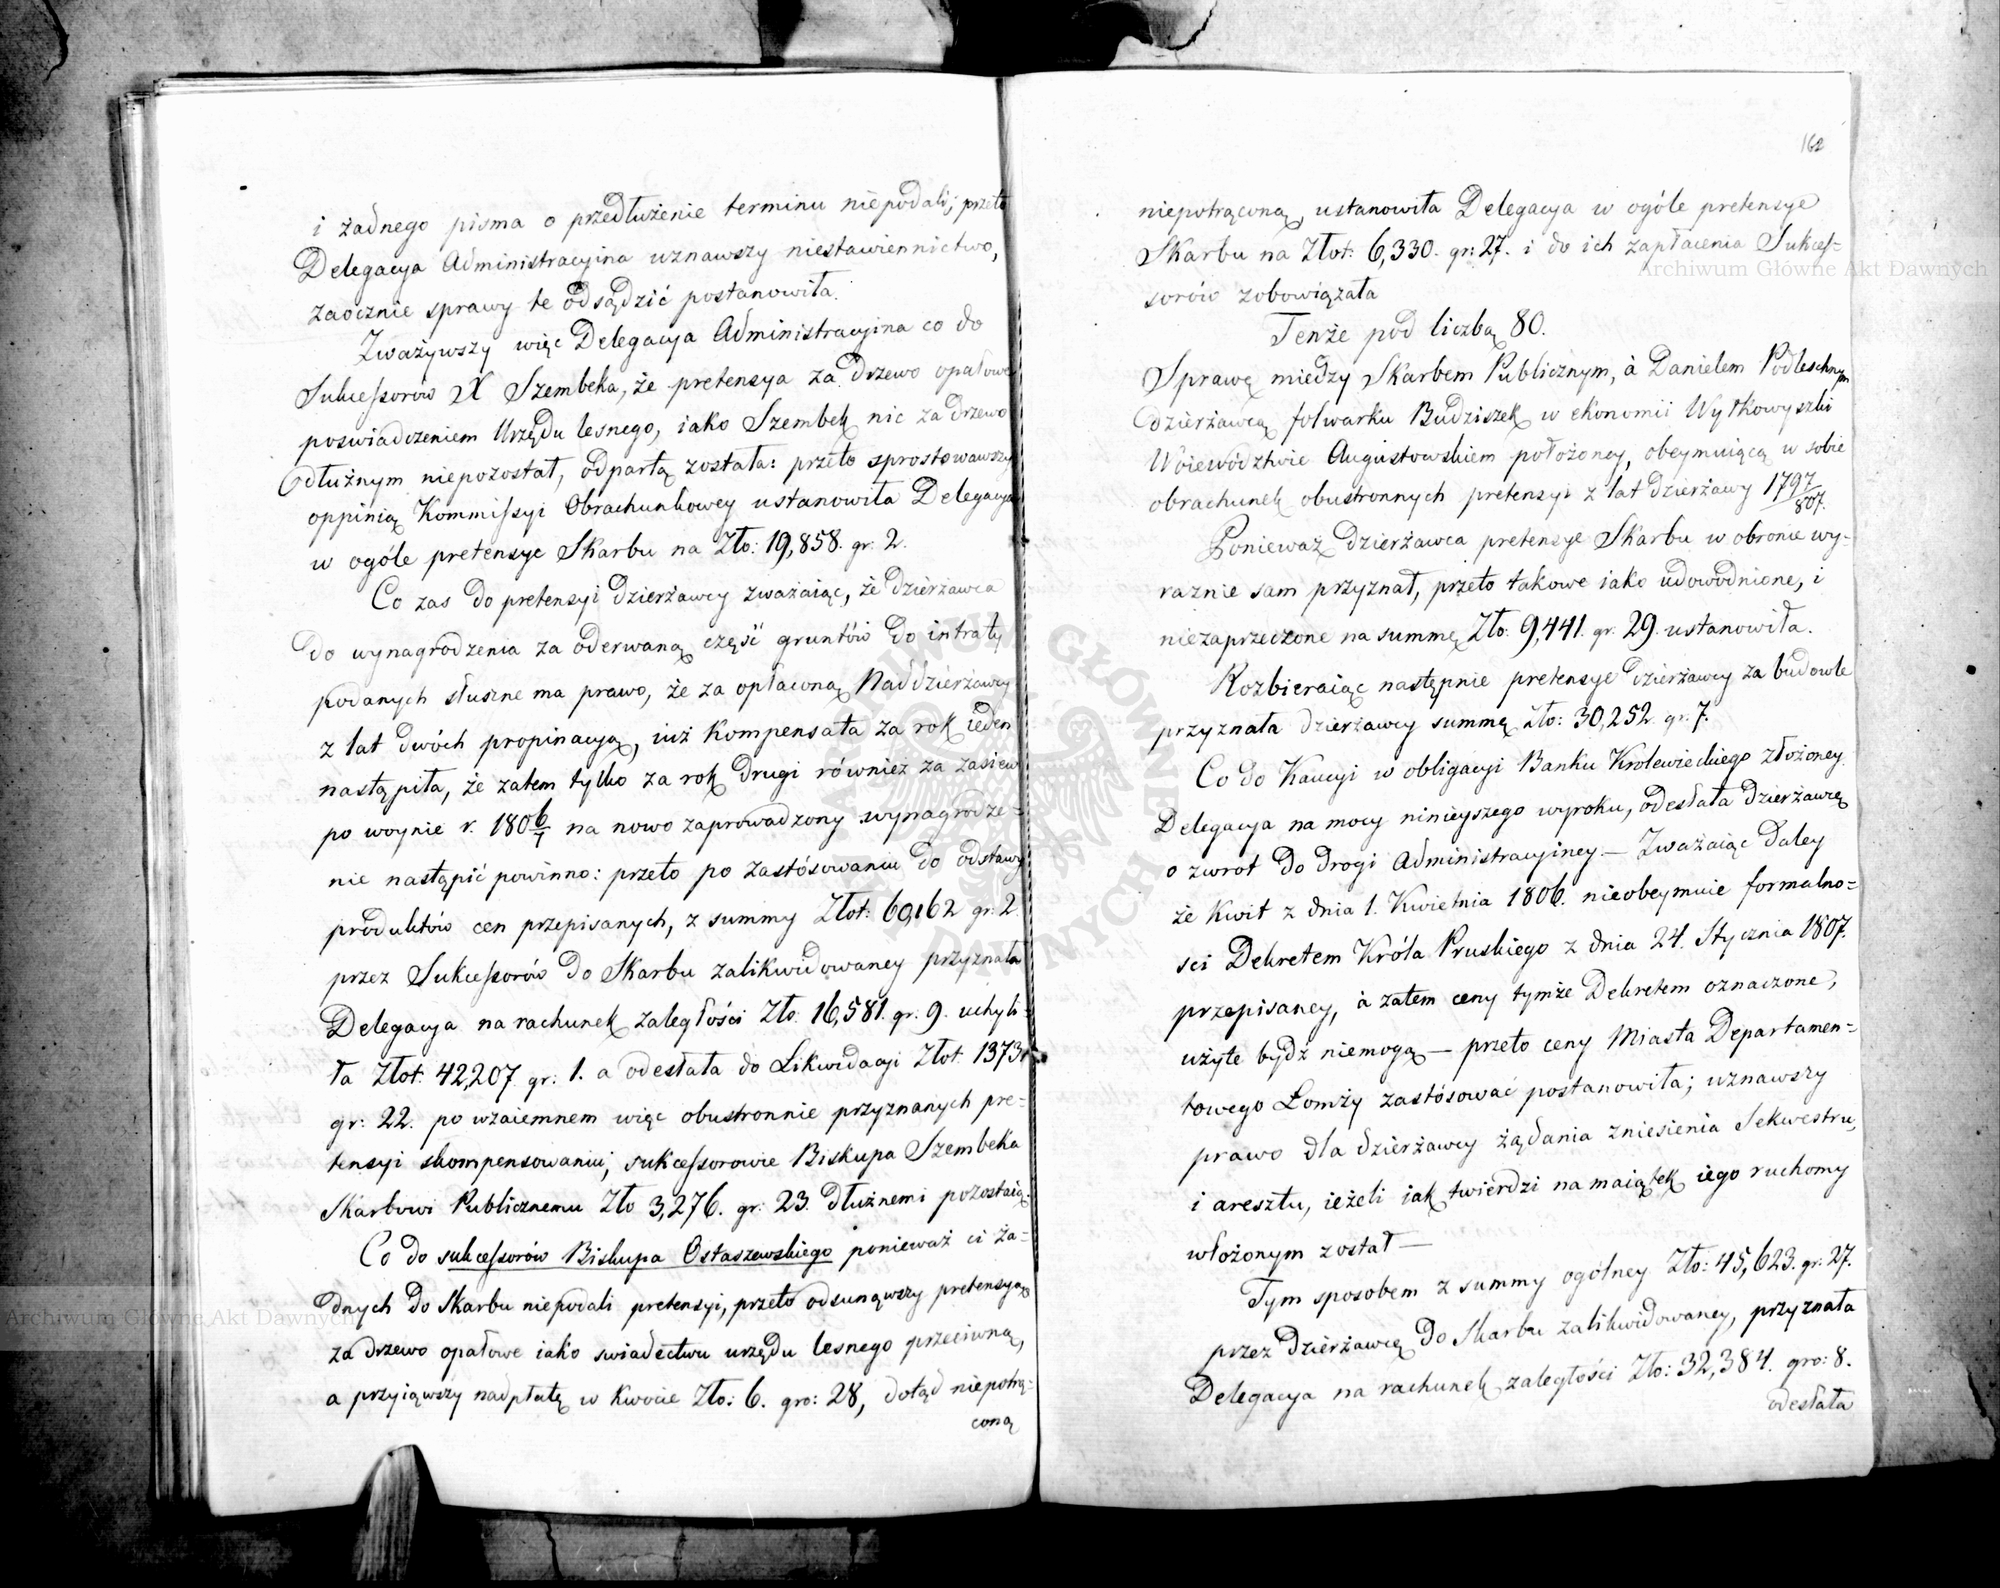 i żadnego pisma o przedłużenie terminu niepodali; przeto
Delegacya Administracyina uznawszy niestawiennictwo,
zaocznie sprawy te odsądzić postanowiła.
Zważywszy więc Delegacya Administracyina co do
Sukcessorów X Szembeka, że pretensya za drzewo opałowe
poswiadczeniem Urzędu lesnego, iako Szembek nic za drzewo
dłużnym niepozostał, odpartą została: przeto sprostowawszy
oppinią Kommissyi Obrachunkowey ustanowiła Delegacya
w ogóle pretensye Skarbu na Zło: 19,858. gr. 2.
Co zas do pretensyi dzierżawcy zważaiąc, że dzierżawca
do wynagrodzenia za oderwaną część gruntów do intraty
podanych słuszne ma prawo, że za opłaconą Naddzierżawcy
z lat dwóch propinacyą, iuż kompensata za rok ieden
nastąpiła, że zatem tylko za rok drugi również za zasiew
po woynie r. 1806/7 na nowo zaprowadzony wynagrodze=
nie nastąpić powinno: przeto po zastósowaniu do odstawy
produktów cen przepisanych, z summy Złot: 60,162 gr. 2.
przez Sukcessorów do Skarbu zalikwidowaney przyznała
Delegacya na rachunek zaległości Zło: 16,581. gr. 9. uchyli=
ła Złot: 42,207 gr: 1. a odesłała do Likwidacyi Złot. 1373
gr: 22. po wzaiemnem więc obustronnie przyznanych pre=
tensyi skompensowaniu; sukcessorowie Biskupa Szembeka
Skarbowi Publicznemu Zło 3,276. gr: 23. dłużnemi pozostaią.
Co do sukcessorów Biskupa Ostaszewskiego ponieważ ci ża=
dnych do Skarbu niepodali pretensyi, przeto odsunąwszy pretensyą
za drzewo opałowe iako swiadectwu urzędu lesnego przeciwną,
a przyiąwszy nadpłatę w kwocie Zło: 6. gro: 28, dotąd niepotrą=
coną
162
niepotrąconą, ustanowiła Delegacya w ogóle pretensye
Skarbu na Złot: 6,330. gr: 27. i do ich zapłacenia Sukces=
sorów zobowiązała
Tenże pod liczbą 80.
Sprawę miedzy Skarbem Publicznym, à Danielem Podleschnym
dzierżawcą folwarku Budziszek w ekonomii Wyłkowyszki
Woiewództwie Augustowskiem położoney, obeymuiącą w sobie
obrachunek obustronnych pretensyi z lat dzierżawy 1797/807.
Ponieważ dzierżawca pretensye Skarbu w obronie wy=
raznie sam przyznał, przeto takowe iako udowodnione, i
niezaprzeczone na summę Zło. 9,441. gr. 29. ustanowiła.
Rozbieraiąc następnie pretensye dzierżawcy za budowle
przyznała dzierżawcy summę Zło: 30,252. gr. 7.
Co do Kaucyi w obligacyi Banku Krolewieckiego złożoney
Delegacya na mocy ninieyszego wyroku, odesłała dzierżawcę
o zwrot do drogi Administracyiney — Zważaiąc daley
że Kwit z dnia 1. Kwietnia 1806. nieobeymuie formalno=
sci Dekretem Króla Pruskiego z dnia 24. Stycznia 1807.
przepisaney, à zatem ceny tymże Dekretem oznaczone,
użyte bydź niemogą — przeto ceny Miasta Departamen=
towego Lomży zastósować postanowiła; uznawszy
prawo dla dzierżawcy żądania zniesienia Sekwestru,
i aresztu, ieżeli iak twierdzi na maiątek iego ruchomy
włożonym został —
Tym sposobem z summy ogólney Zło: 45,623. gr: 27.
przez dzierżawcę do Skarbu zalikwidowaney, przyznała
Delegacya na rachunek zaległości Zło: 32,384. gro: 8.
odesłała
Archiwum Główne Akt Dawnych
Archiwum Główne Akt Dawnych
ARCHIWUM GŁÓWNE AKT DAWNYCH